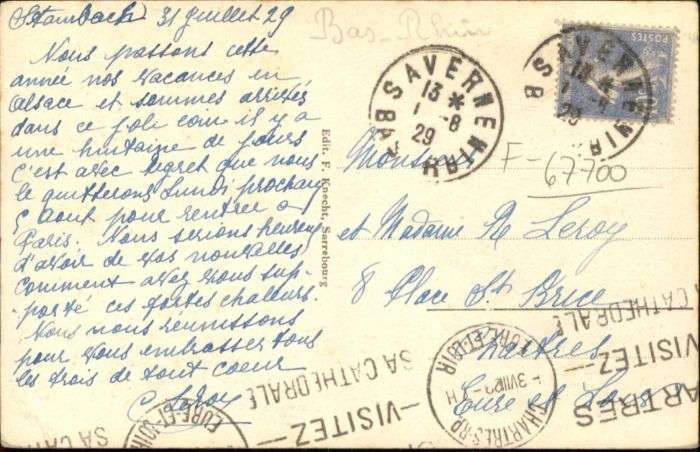 Stambach 31 Juillet 29
Nous passons cette
année nos vacances en
Alsace et sommes arrêtés
dans ce joli coin il y a
une huitaine de jours
C'est avec regret que nous
le quitterons Lundi prochain
5 Aout pour rentrer a
Paris. Nous serions heureux
d'avoir de vos nouvelles
Comment avez vous sup-
porté ces fortes chaleurs.
Nous nous réunissons
pour vous embrasser tous
les trois de tout coeur
C Leroy
Edit. F. Knecht, Sarrebourg
Bas-Rhin
SAVERNE
13 *
1 -8
29
BAS RHIN
POSTES
SAVERNE
13 *
1 -8
29
BAS RHIN
F-67700
Monsieur
et Madame R Leroy
8 Place St Brice
Chartres
Eure et Loir
CHARTRES RP.
EURE-ET-LOIR
VISITEZ
SA CATHEDRALE
CHARTRES
VISITEZ
SA CATHEDRALE
EURE-ET-LOIR